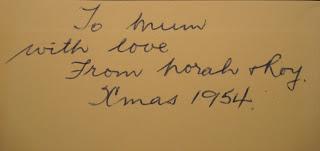 To Mum
with love
From Norah & Roy.
Xmas 1954.